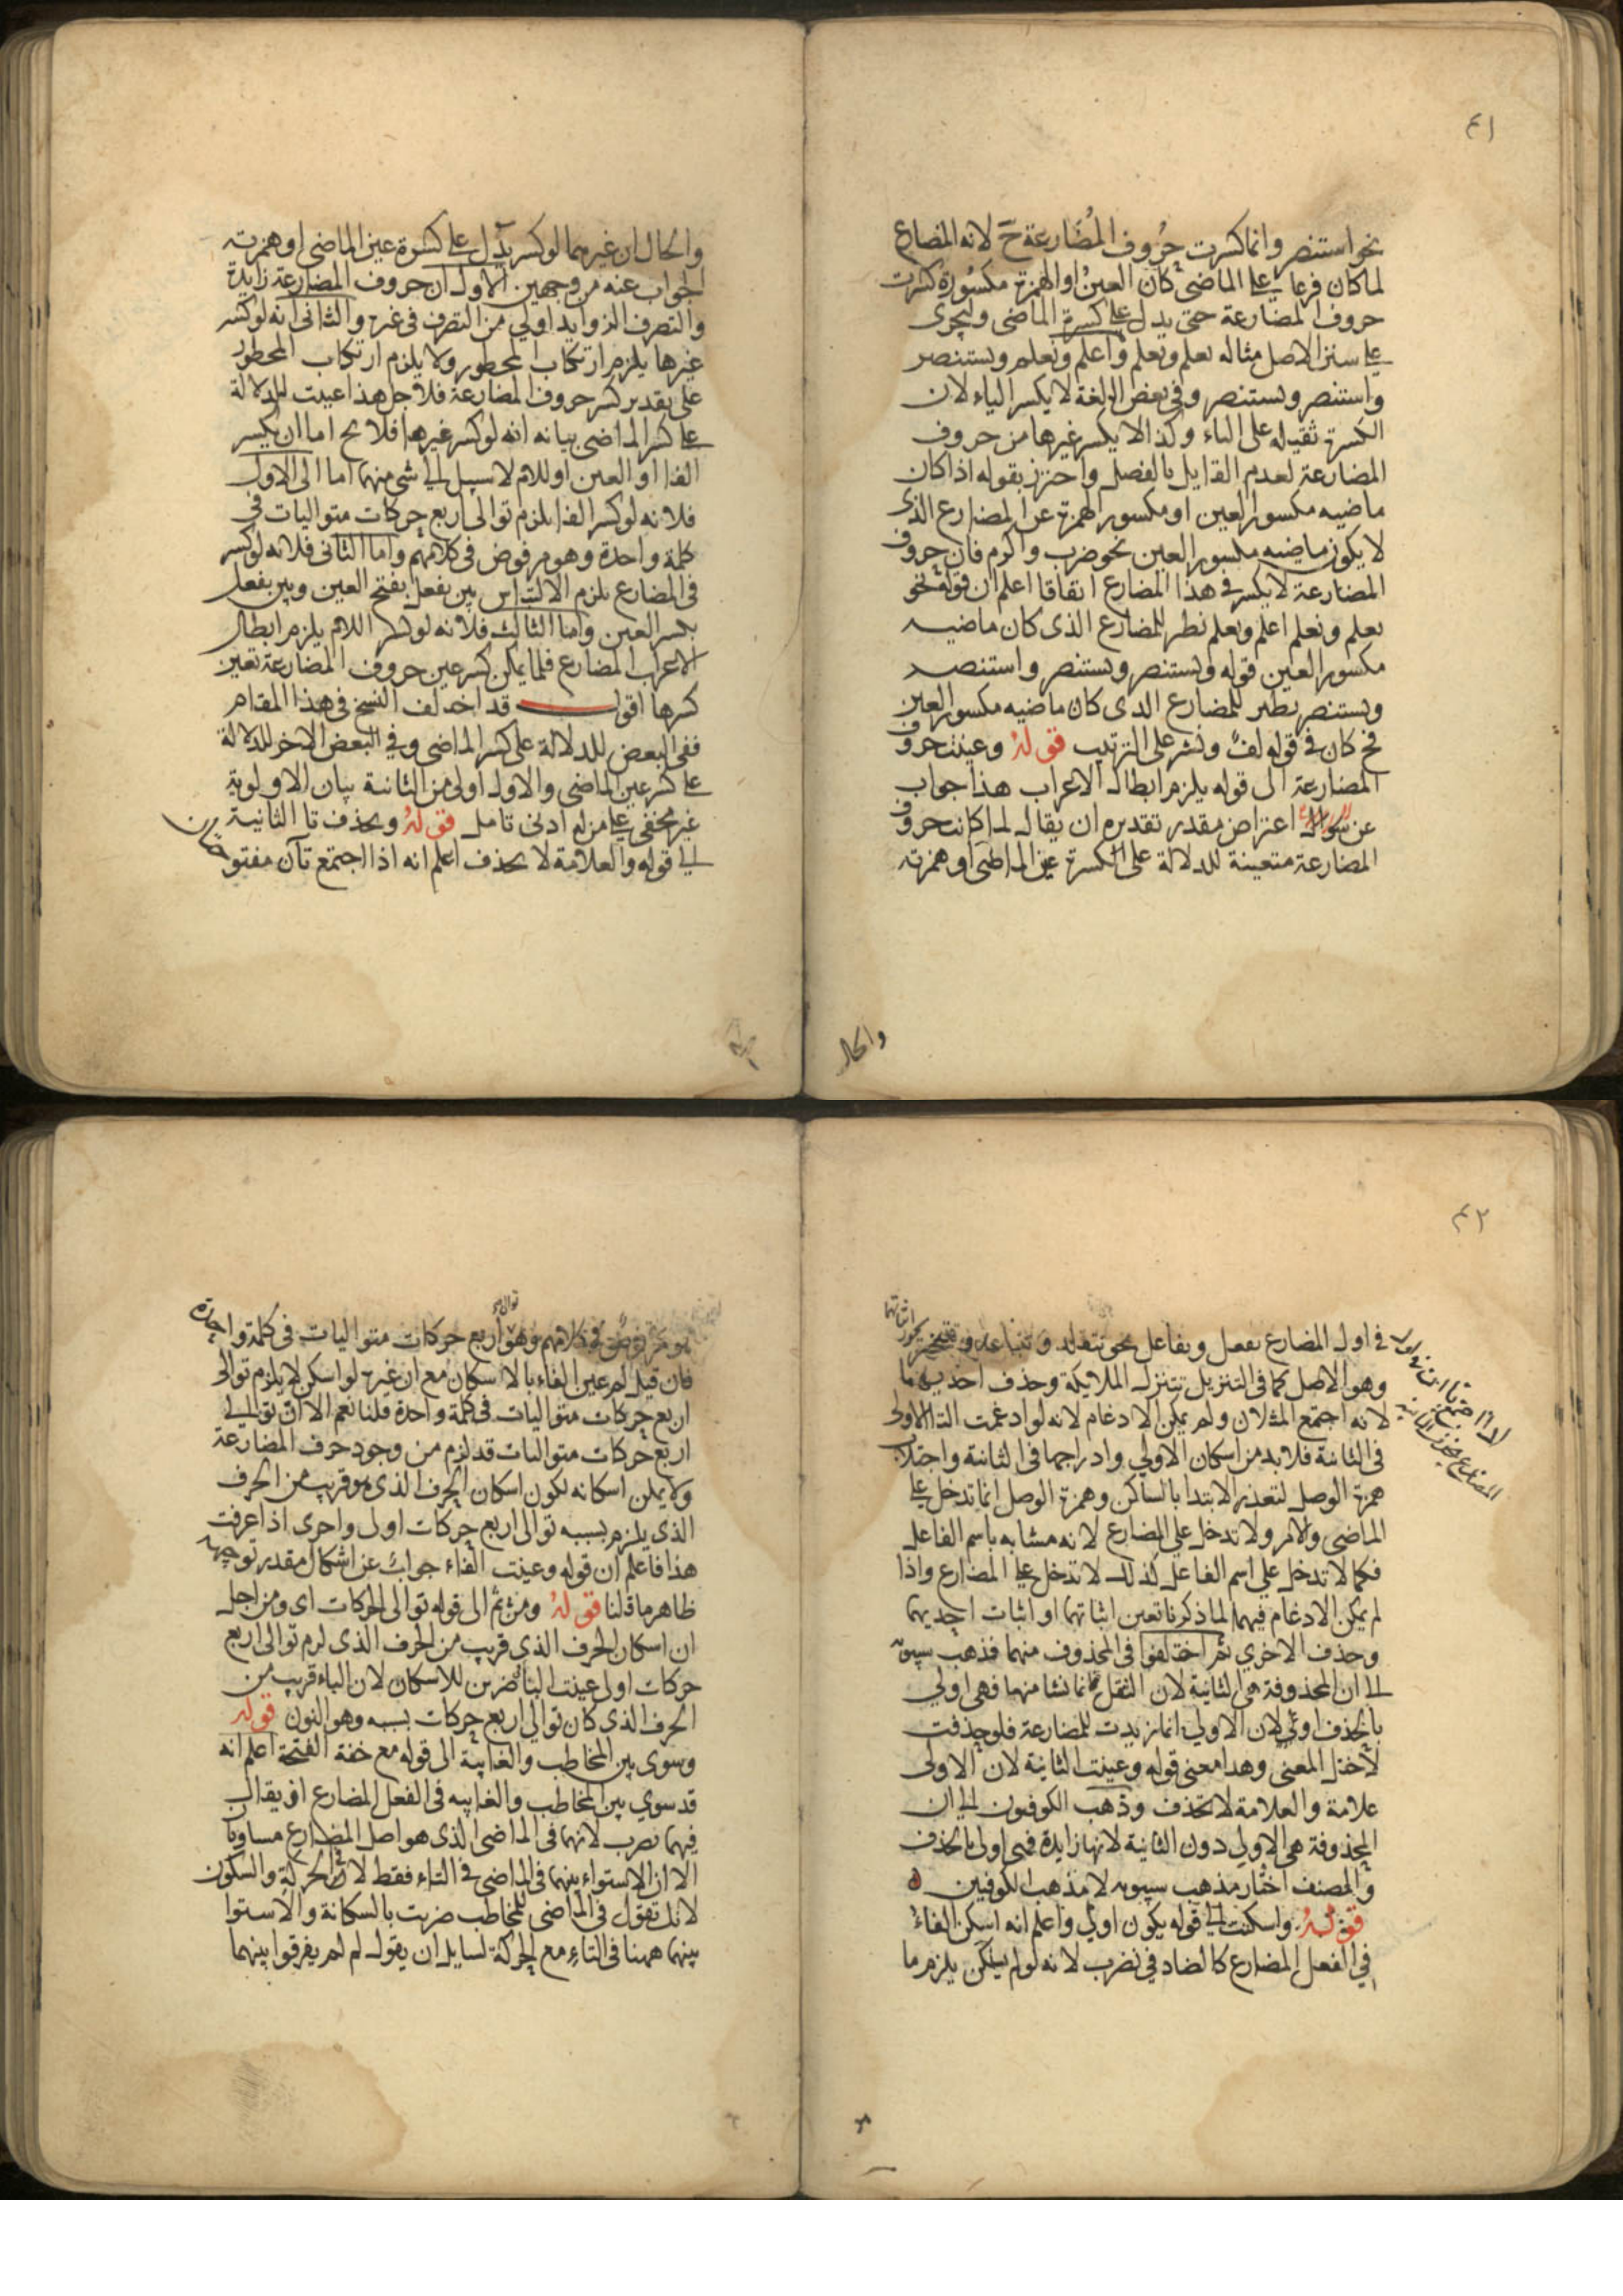 ٤١
نحو استنصر وانما كسرت حروف المضارعة ح لانه المضارع
لما كان فرعا على الماضى كان العين او الهمزة مكسورة كسرت
حروف المضارعة حتى يدل على كسرة الماضى وليجرى
على سنن الاصل مثاله يعلم وتعلم واعلم ونعلم ويستنصر
واستنصر ونستنصر وفى بعض اللغة لا يكسر الياء لان
الكسرة ثقيلة على الياء وكذا لا يكسر غيرها من حروف
المضارعة لعدم القايل بالفصل واحترز بقوله اذا كان
ماضيه مكسور العين او مكسور الهمزة عن المضارع الذى
لا يكون ماضيه مكسور العين نحو ضرب واكرم فان حروف
المضارعة لا يكسر فى هذا المضارع اتفاقا اعلم ان قوله نحو
يعلم وتعلم اعلم ونعلم نظر للمضارع الذى كان ماضيه
مكسور العين قوله ويستنصر وتستنصر واستنصر
ونستنصر نظير للمضارع الذى كان ماضيه مكسور العين
فح كان فى قوله لف ونشر على الترتيب قوله وعينت حروف
المضارعة الى قوله يلزم ابطال الاعراب هذا جواب
عن سوال اعتراض مقدر تقديره ان يقال لما كانت حروف
المضارعة متعينة للدلالة على الكسرة عين الماضى او همزته
والحال
والحال ان غيرهما لو كسر يدل على كسرة عين الماضى او همزته
الجواب عنه من وجهين الاول ان حروف المضارعة زايدة
والتصرف الزوايد اولى من التصرف فى غيره والثانى انه لو كسر
غيرها يلزم ارتكاب المحظور ولا يلزم ارتكاب المحظور
على تقدير كسر حروف المضارعة فلاجل هذا عينت للدلالة
على كسر الماضى بيانه انه لو كسر غيرها فلا يح اما ان يكسر
الفا او العين او اللام لا سبيل الى شى منهما اما الى الاول
فلانه لو كسر الفا يلزم توالى اربع حركات متواليات فى
كلمة واحدة وهو مرفوض فى كلامهم واما الثانى فلانه لو كسر
فى المضارع يلزم الالتباس بين يفعل بفتح العين وبين يفعل
بكسر العين واما الثالث فلانه لو كسر اللام يلزم ابطال
الاعراب المضارع فلما يمكن كسر عين حروف المضارعة تعين
كسرها اقول قد اختلف النسخ فى هذا المقام
ففى البعض للدلالة على كسر الماضى وفى البعض الاخر للدلالة
على كسر عين الماضى والاول اولى من الثانية بيان الاولوية
غير مخفى على من له ادنى تامل قوله ويحذف تا الثانية
الى قوله والعلامة لا يحذف اعلم انه اذا اجتمع تآن مفتوحتان
٤٢
فى اول المضارع تفعل وتفاعل نحو تتقلد وتتباعد
وهو الاصل كما فى التنزيل تتنزل الملايكة وحذف احديهما
لانه اجتمع المثلان ولم يمكن الادغام لانه لو ادغمت التا الاولى
فى الثانية فلا بد من اسكان الاولى وادراجها فى الثانية واجتلاب
همزة الوصل لتعذر الابتدا بالساكن وهمزة الوصل انما تدخل على
الماضى والامر ولا تدخل على المضارع لانه مشابه باسم الفاعل
فكما لا تدخل على اسم الفاعل كذلك لا تدخل على المضارع واذا
لم يمكن الادغام فيهما لما ذكرنا تعين اثباتهما او اثبات احديهما
وحذف الاخرى ثم اختلفوا فى المحذوف منهما فذهب سيبويه
الى ان المحذوفة هى الثانية لان الثقل انما نشا منها فهى اولى
بالحذف لان الاولى انما زيدت للمضارعة فلو حذفت
لاختل المعنى وهذا معنى قوله وعينت الثانية لان الاولى
علامة والعلامة لا تحذف وذهب الكوفيون الى ان
المحذوفة هى الاولى دون الثانية لانها زايدة فهى اولى بالحذف
والمصنف اختار مذهب سيبويه لا مذهب الكوفيين
قوله واسكنت الى قوله يكون اولى واعلم انه اسكن الفاء
فى الفعل المضارع كالضاد فى يضرب لانه لو لم يسكن يلزم ما
هو مرفوض فى كلامهم وهو توالى اربع حركات متواليات فى كلمة واحدة
فان قيل لم عين الفاء بالاسكان مع ان غيره لو اسكن لا يلزم توالى
اربع حركات متواليات فى كلمة واحدة قلنا نعم الا ان توالى
اربع حركات متواليات قد لزم من وجود حرف المضارعة
ولا يمكن اسكانه لكون اسكان الحرف الذى هو قريب من الحرف
الذى يلزم بسببه توالى اربع حركات اولى واحرى اذا عرفت
هذا فاعلم ان قوله وعينت الفاء جواب عن اشكال مقدر توجيهه
ظاهر ما قلنا قوله ومن ثم الى قوله توالى الحركات اى ومن اجل
ان اسكان الحرف الذى قريب من الحرف الذى لزم توالى اربع
حركات اولى عينت البا ضربن للاسكان لان الباء قريب من
الحرف الذى كان توالى اربع حركات بسببه وهو النون قوله
وسوى بين المخاطب والغايبة الى قوله مع خفة الفتحة اعلم انه
قد سوى بين المخاطب والغايبه فى الفعل المضارع اذ يقال
فيهما تضرب لانهما فى الماضى الذى هو اصل المضارع مساويا
الا ان الاستواء بينهما فى الماضى فى التاء فقط لا فى الحركة والسكون
لانك تقول فى الماضى للمخاطب ضربت بالسكانة والاستوا
بينهما ههنا فى التاء مع الحركة لسايل ان يقول لم لم يفرقوا بينهما